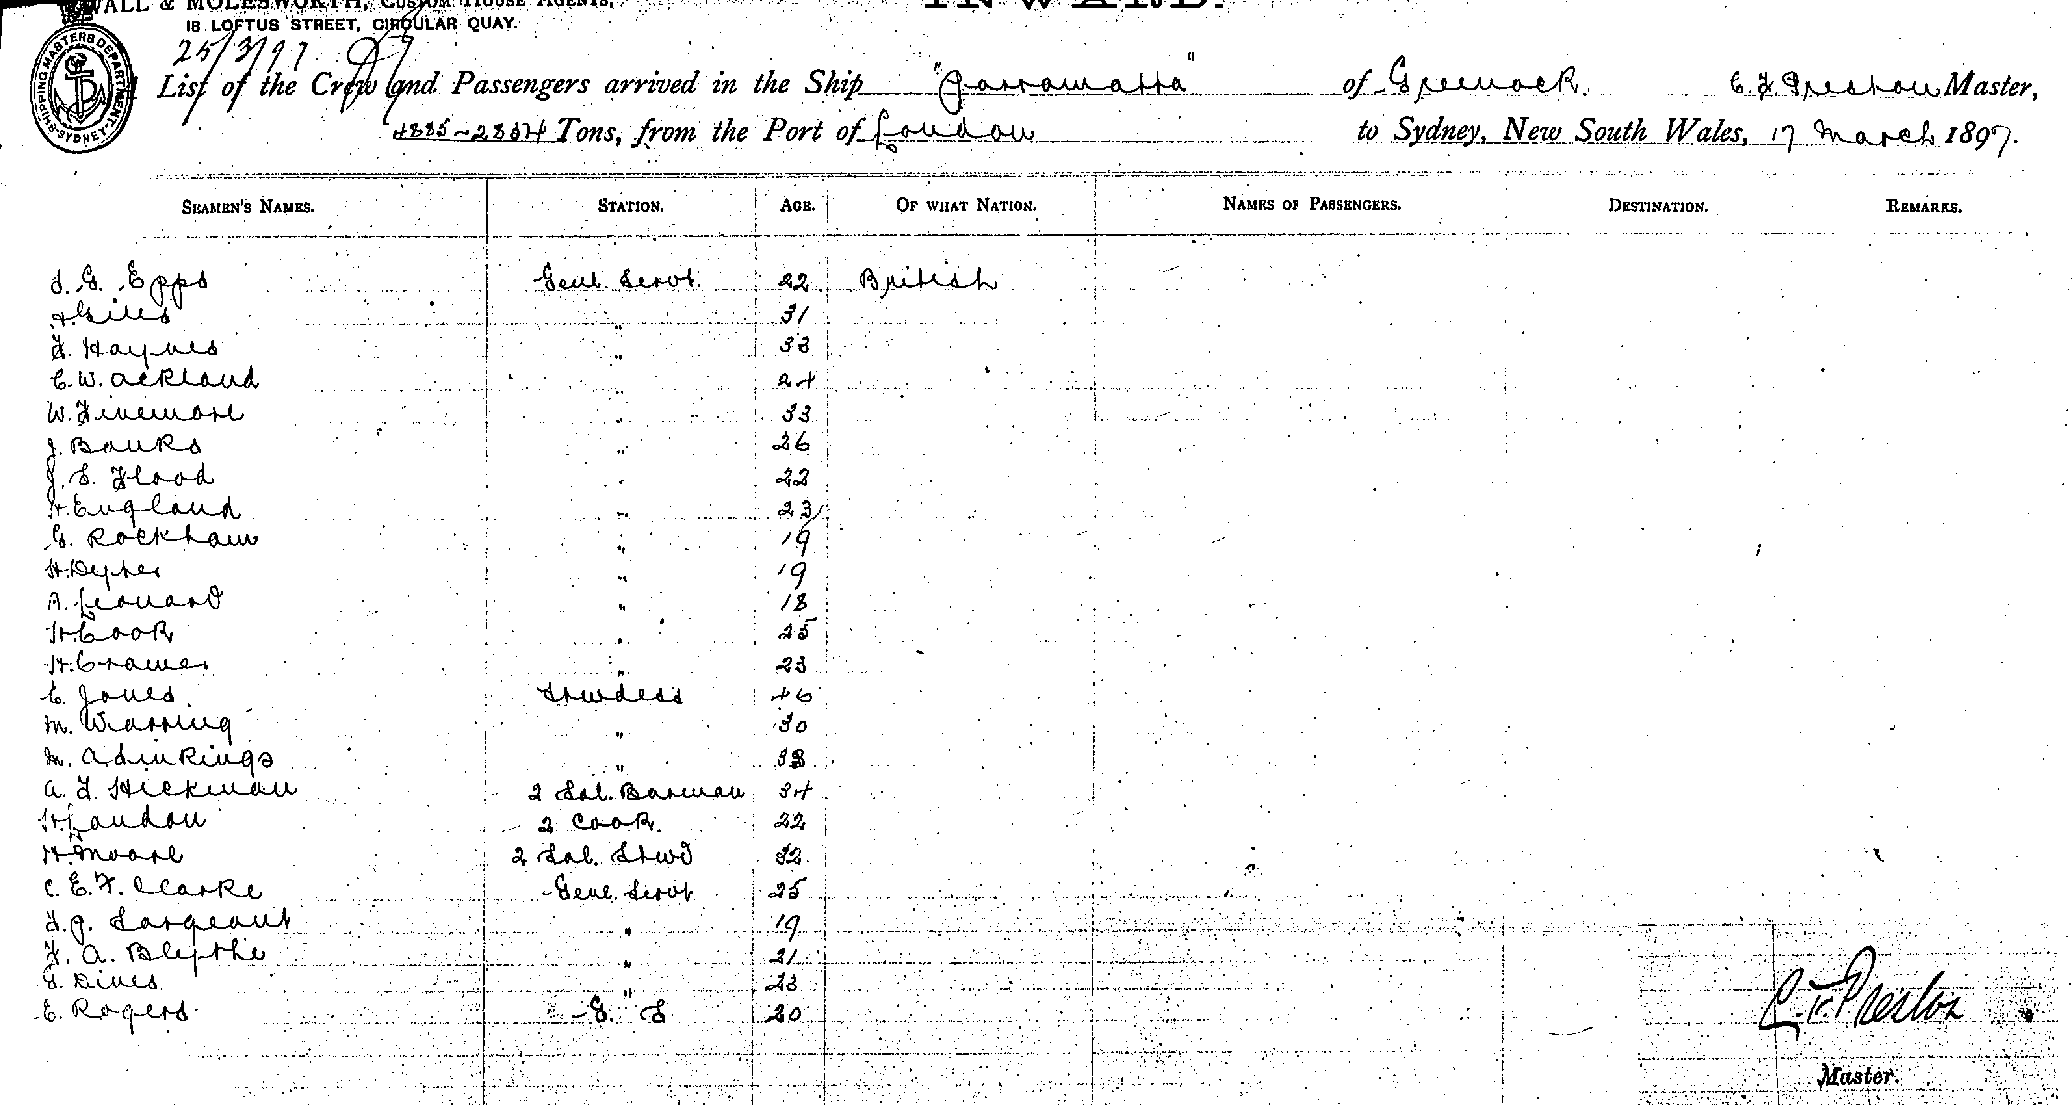 WALL & MOLESWORTH, CUSTOM HOUSE AGENTS,
18 LOFTUS STREET, CIRCULAR QUAY.
INWARD.
SHIPPING MASTERS DEPARTMENT SYDNEY
25/3/97
List of the Crew and Passengers arrived in the Ship "Parramatta" of Greenock. C. F. Preston Master,
4885-2854 Tons, from the Port of London to Sydney, New South Wales, 17 March 1897.
SEAMEN'S NAMES. STATION. AGE. OF WHAT NATION. NAMES OF PASSENGERS. DESTINATION. REMARKS.
S. G. Epps Genl Servt 22 British
Giles " 31
F. Haynes " 33
C. W. Ackland " 24
W. Finemore " 33
J. Banks " 26
J. S. Flood " 22
H. England " 23
G. Rockham " 19
H. " 19
A. Leonard " 18
H. Cook " 25
H. Cramer " 23
E. Jones Stwdess 46
M. Warring " 30
M. Adinkings " 33
A. F. Hickman 2 Sal. Barman 34
H. London 2 Cook 22
H. Moore 2 Sal. Stwd 32
C. E. F. Clarke Genl Servt 25
F. J. Sargeant " 19
F. A. Blythe " 21
G. Dines " 23
E. Rogers G. S 20
C. F. Preston
Master.